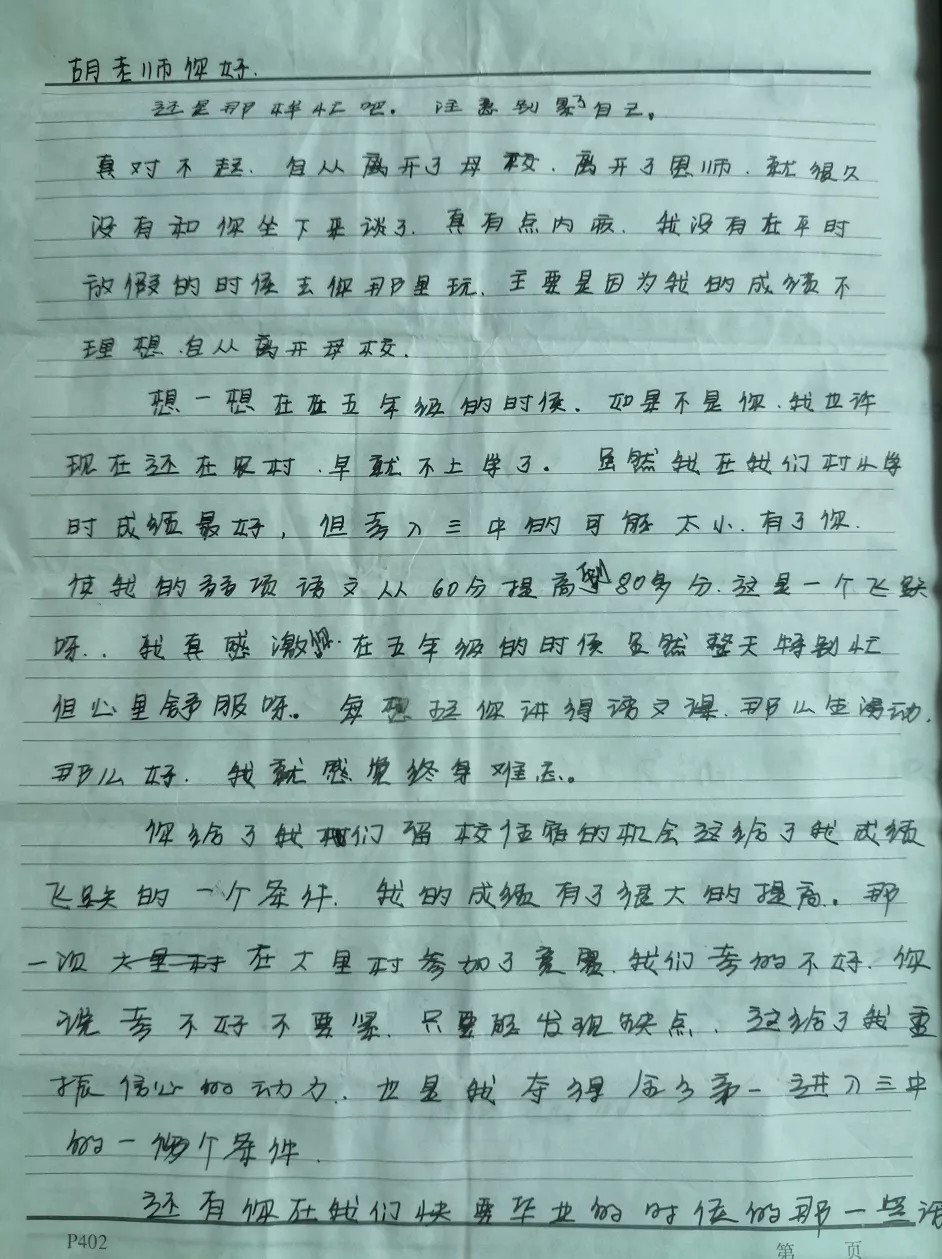 胡老师你好.
还是那样忙吧。注意别累了自己。
真对不起.自从离开了母校.离开了恩师.就很久
没有和你坐下来谈了.真有点内疚.我没有在平时
放假的时侯去你那里玩.主要是因为我的成绩不
理想.自从离开母校.
想一想在在五年级的时侯.如果不是你.我也许
现在还在农村.早就不上学了。虽然我在我们村小学
时成绩最好,但考入三中的可能太小.有了你.
使我的弱项语文从60分提高到80多分.这是一个飞跃
呀..我真感激您.在五年级的时侯虽然整天特别忙
但心里舒服呀。每想起你讲得语文课.那么生动.
那么好.我就感觉终身难忘。
你给了我们留校住宿的机会这给了我成绩
飞跃的一个条件.我的成绩有了很大的提高。那
一次大里村在大里村参加了竞赛.我们考的不好.你
说考不好不要紧.只要能发现缺点.这给了我重
振信心的动力.也是我夺得全乡第一进入三中
的一个条件.
还有你在我们快要毕业的时侯的那一些话
P402
第 页